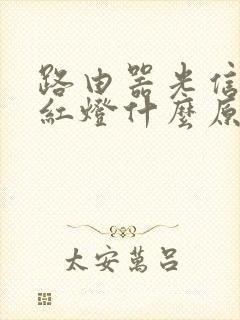 路由器光信
紅燈什麼原
太安萬呂